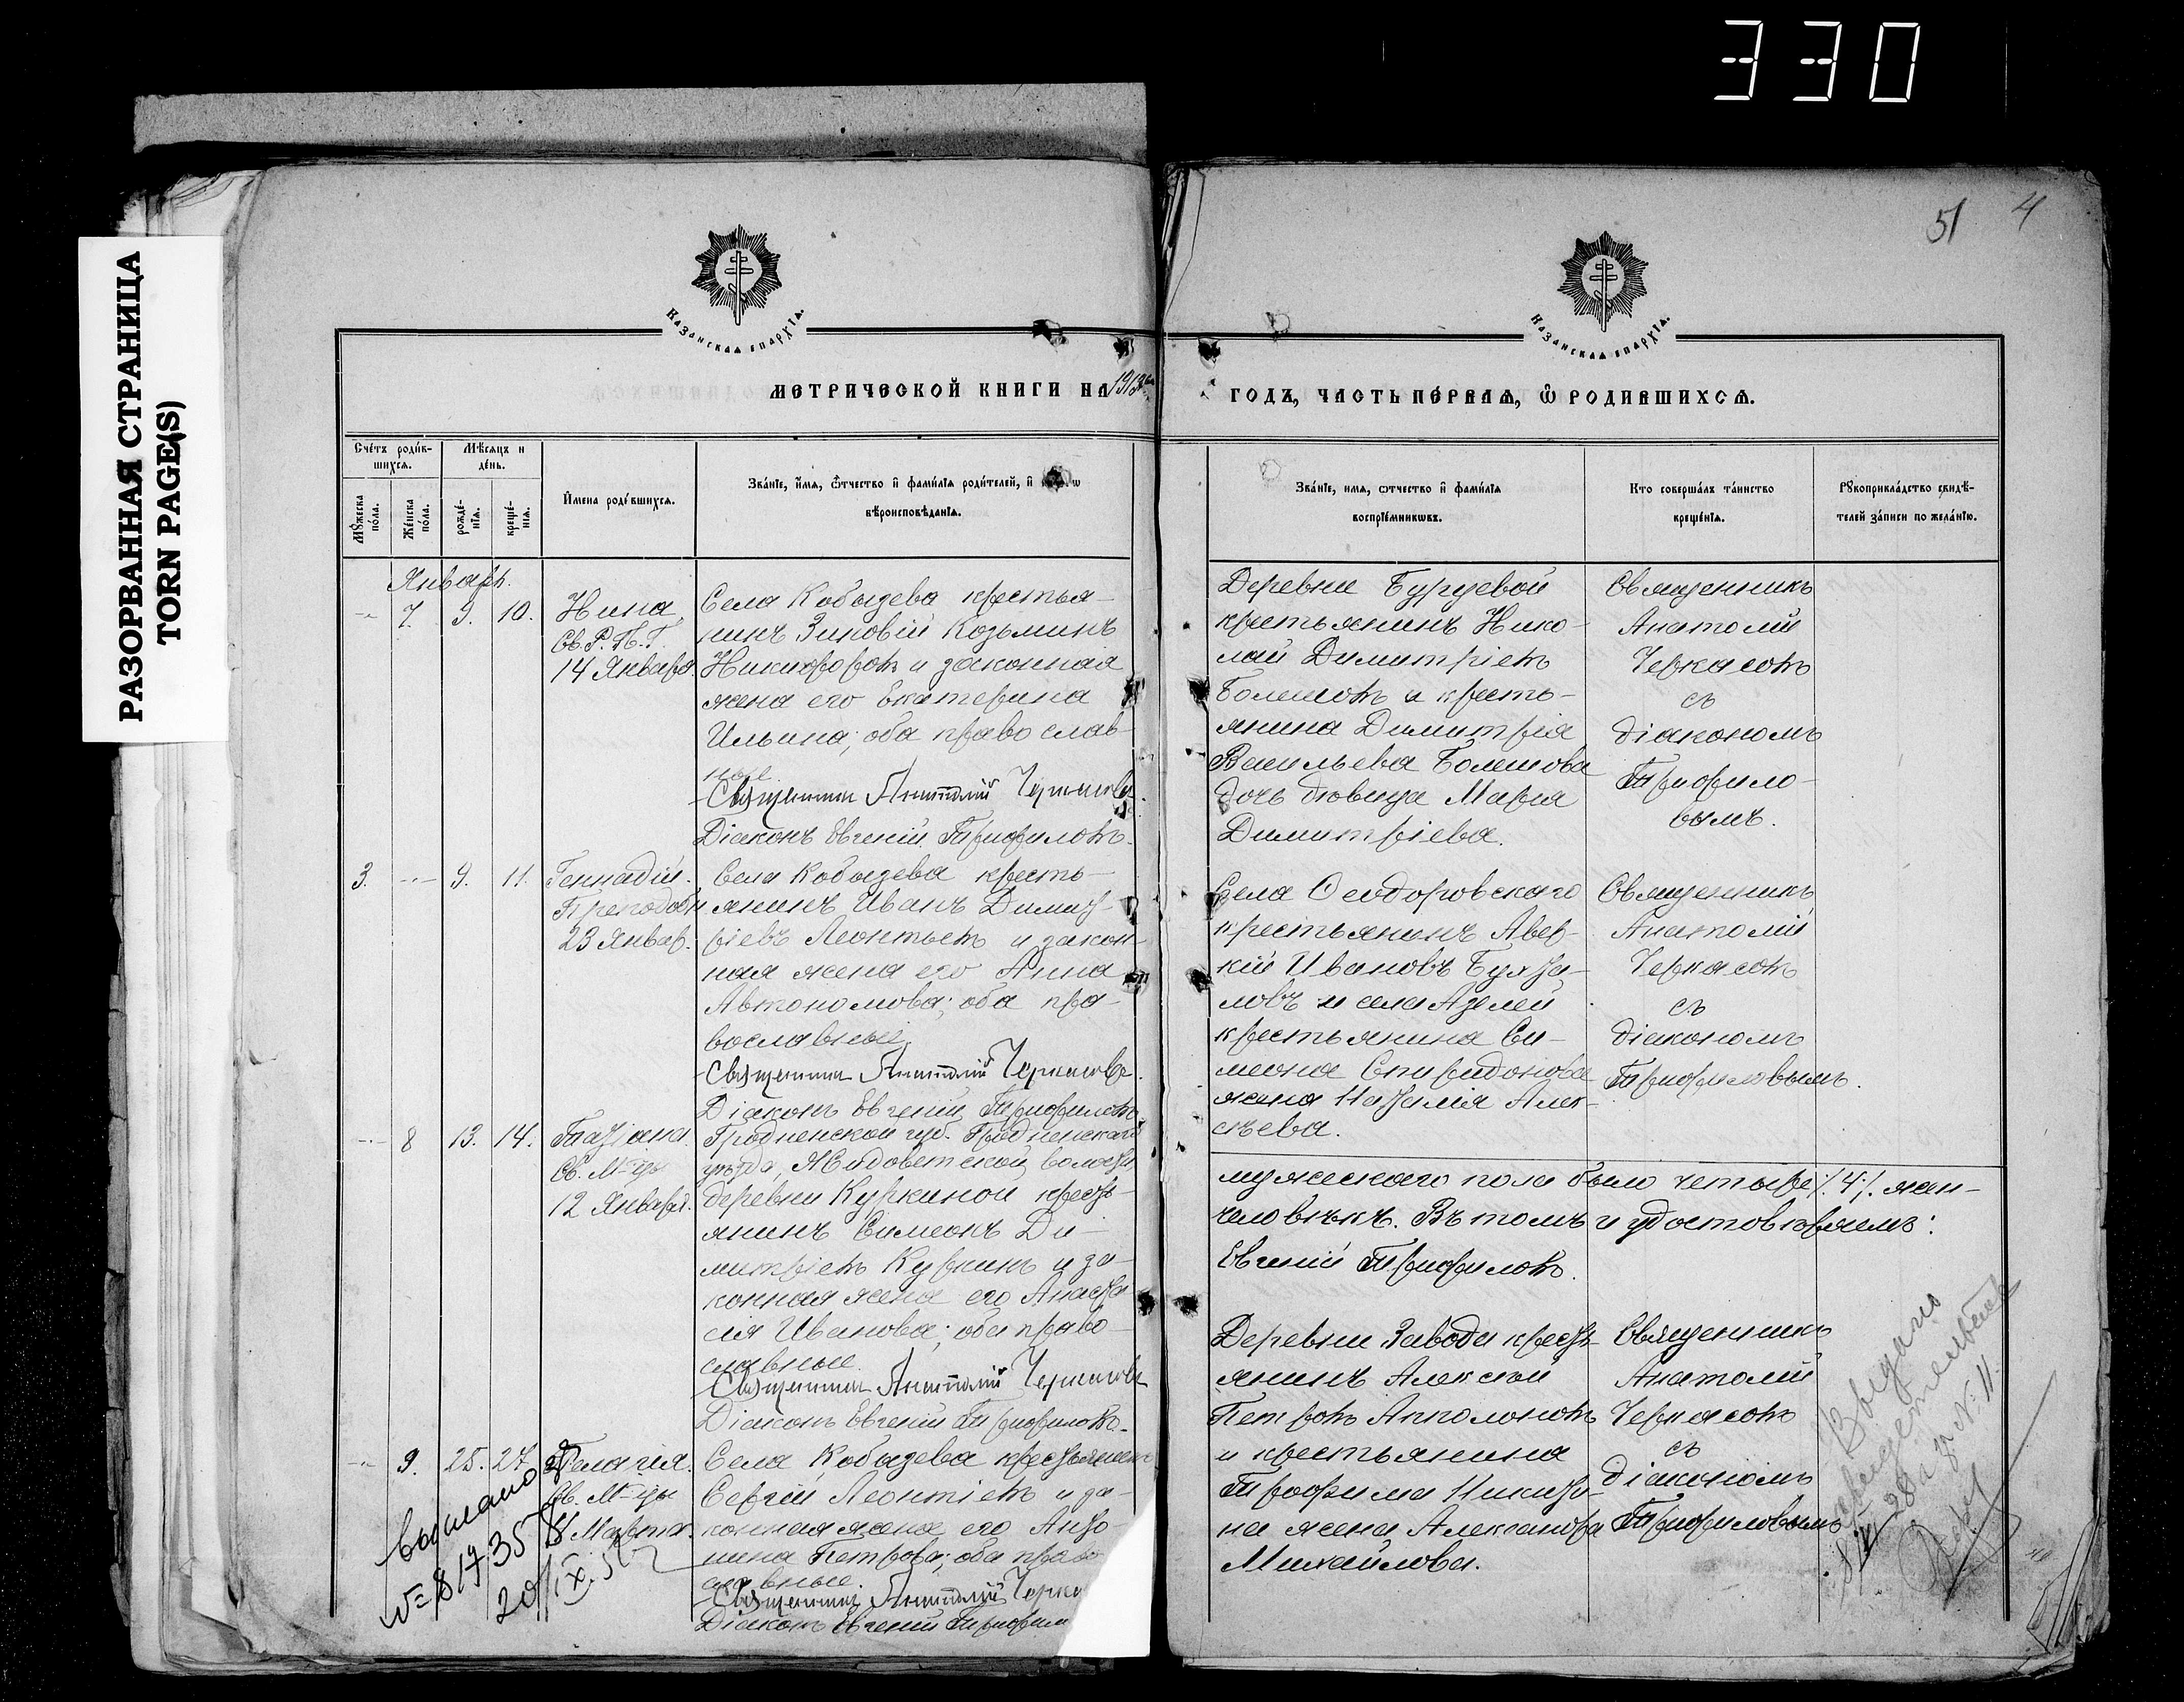 330
РАЗОРВАННАЯ СТРАНИЦА
TORN PAGE(S)
51 4
Казанская епархїа.
Казанская епархїа.
МЕТРИЧЕСКОЙ КНИГИ НА 1913
ГОДЪ, ЧАСТЬ ПЕ́РВАЯ, Ѿ РОДИВШИХСѦ.
Сче́тъ роди́в-
шихсѧ.
Мѣ́сяцъ и
де́нь.
Мꙋ́жеска
по́ла.
Же́нска
по́ла.
рожде́-
нїѧ.
креще́-
нїѧ.
И҆мена роди́вшихсѧ.
Зва́нїе, и҆мѧ, ѻ҆́тчество и҆ фами́лїѧ роди́телей, и҆
вѣроисповѣ́данїѧ.
Зва́нїе, имѧ, ѻтчество и҆ фами́лїѧ
воспрїе́мникѡвъ.
Кто соверша́лъ та́инство
креще́нїѧ.
Рꙋкоприкла́дство свидѣ́-
телей за́писи по жела́нїю.
Январь.
7. 9. 10. Нина
Св. Р. П. Г.
14 Января.
Села Кобызева крестья-
нинъ Зиновій Козьминъ
Никифоровъ и законная
жена его Екатерина
Ильина; оба православ-
ные.
Священникъ Анатолій Черкасовъ.
Діаконъ Евгеній Трифиловъ.
Деревни Бурцевой
крестьянинъ Нико-
лай Димитріевъ
Болешовъ и кресть-
янина Димитрія
Васильева Болешова
дочь дѣвица Марія
Димитріева.
Священникъ
Анатолій
Черкасовъ
съ
діакономъ
Трифило-
вымъ.
3. 9. 11. Геннадій.
Преподобн.
23 Январ.
Села Кобызева кресть-
янинъ Иванъ Димит-
ріевъ Леонтьевъ и закон-
ная жена его Анна
Автономова; оба пра-
вославные.
Священникъ Анатолій Черкасовъ.
Діаконъ Евгеній Трифиловъ.
Села Ѳеодоровскаго
крестьянинъ Авер-
кій Ивановъ
ловъ и села Азелей
крестьянина Си-
меона Спиридонова
жена Наталія Алек-
сѣева.
Священникъ
Анатолій
Черкасовъ
съ
діакономъ
Трифиловымъ.
8 13. 14. Татіана.
Св. М-цы
12 Января.
Гродненской губ. Гродненскаго
уѣзда, Жидовемской волости
деревни Куркиной кресть-
янинъ Симеонъ Ди-
митріевъ Куркинъ и за-
конная жена его Анаста-
сія Иванова; оба право-
славные.
Священникъ Анатолій Черкасовъ
Діаконъ Евгеній Трифиловъ.
мужескаго пола было четыре /.4/. жен-
человѣкъ. Въ томъ и удостовѣряемъ:
Евгеній Трифиловъ.
9. 25. 27. Пелагія.
Св. М-цы
Марта.
Села Кобызева крестьянинъ
Сергій Леонтіевъ и за-
конная жена его Анто-
нина Петрова; оба право
славные.
Священникъ Анатолій Черка
Діаконъ Евгеній Трифил
Деревни Заводи кресть-
янинъ Алексѣй
Петровъ Апполоновъ
и крестьянина
Трофима Никити-
на жена Александра
Михайлова.
Священникъ
Анатолій
Черкасовъ
съ
діакономъ
Трифиловымъ
выслано
№ 817358
20/IX.
Выдано
свидетельство
28 г. № 11.